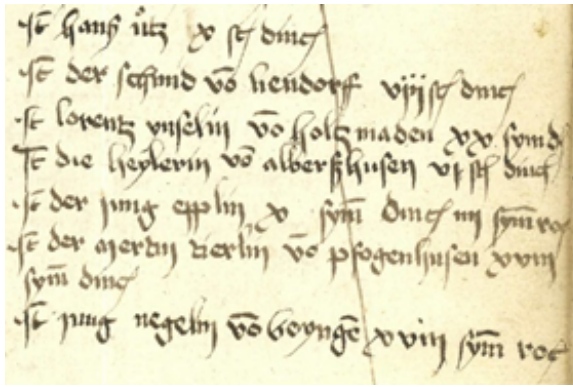 It hans ůtz x sch dinck
It der schmid vō neudorff viij sch dinck
It lorentz vnselin vō holtzmaden xx symd
It die heylerin vō albershusen vj sch dinck
It der jung epplin x sym dinck iiij sym roc
It der merdin vō pfogenhusen xviij
sym dinck
It jung negelin vō boyngē xviij sym roc